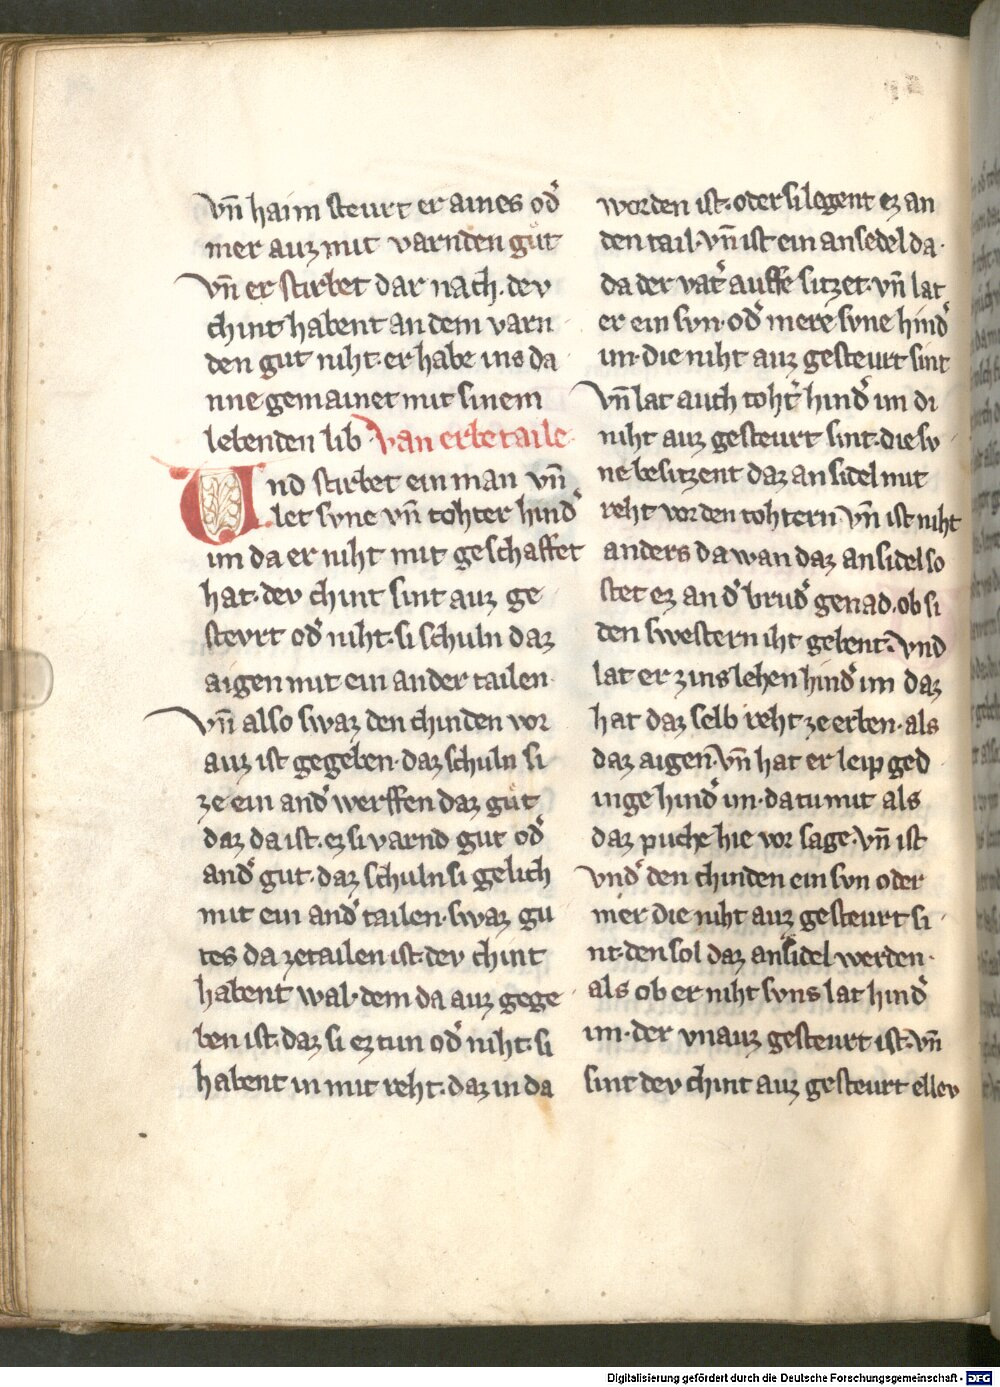 vn̄ haim steurt er aines od̾
mer auz mit varnden gůt
vn̄ er stirbet dar nach. dev
chint habent an dem varn
den gut niht. er habe ins da
nne gemainet mit sinem
lebenden lib van erbe taile
Und stirbet ein man vn̄
let svne vn̄ tohter hind̾
im da er niht mit geschaffet
hat. dev chint sint auz ge
stevrt od̾ niht. si schuln daz
aigen mit ein ander tailen
vn̄ also swaz den chinden vor
auz ist gegeben. daz schuln si
ze ein and̾ werffen daz gůt
daz da ist. ez si varnd gut od̾
and̾ gut. daz schuln si gelich
mit ein and̾ tailen. swaz gu
tes da zetailen ist. dev chint
habent wal. dem da auz gege
ben ist. daz si ez tun od̾ niht. si
habent in mit reht. daz in da
worden ist. oder si legent ez an
den tail. vn̄ ist ein ansedel da.
da der vat̾ auffe sitzet. vn̄ lat
er ein svn. od̾ mere svne hind̾
im. die niht auz gesteurt sint
vn̄ lat auch toht̾ hind̾ im di
niht auz gesteurt sint. die sv
ne besitzent daz an sidel mit
reht vor den tohtern vn̄ ist niht
anders da wan daz ansidel so
stet ez an d̾ brud̾ genad. ob si
den swestern iht gebent. vnd
lat er zinslehen hind̾ im daz
hat daz selb reht ze erben. als
daz aigen. vn̄ hat er leip ged
inge hind̾ im. da tu mit als
daz puche hie vor sage. vn̄ ist
vnd̾ den chinden ein svn oder
mer die niht auz gesteurt si
nt. den sol daz ansidel werden.
als ob er niht svns lat hind̾
im. der vnauz gesteurt ist. vn̄
sint dev chint auz gesteurt ellev
Digitalisierung gefördert durch die Deutsche Forschungsgemeinschaft - DFG